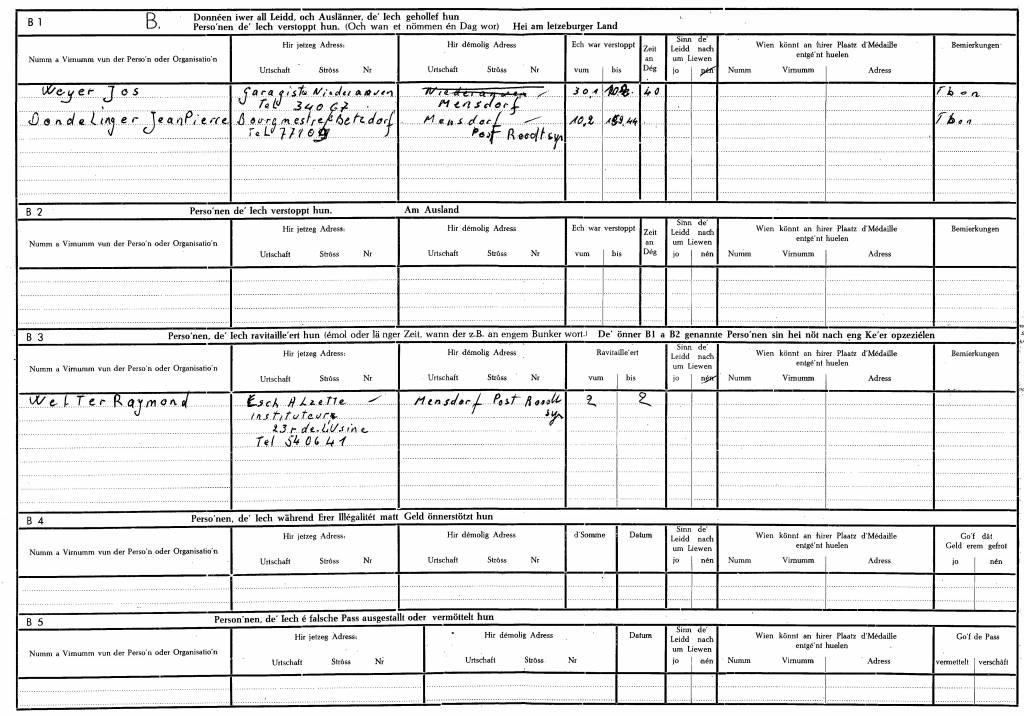 B 1 B. Donnéen iwer all Leidd, och Auslänner, de' Iech gehollef hun
Perso'nen de' Iech verstoppt hun. (Och wan et nömmen én Dag wor) Hei am letzeburger Land
Numm a Virnumm vun der Perso'n oder Organisatio'n
Hir jetzeg Adress:
Urtschaft Strôss Nr
Hir démolig Adress
Urtschaft Strôss Nr
Ech war verstoppt
vum bis
Zeit an Dég
Sinn de' Leidd nach um Liewen
jo nén
Wien könnt an hirer Plaatz d'Médaille entgé'nt huelen
Numm Virnumm Adress
Bemierkungen
Weyer Jos Garagiste Niederanven Niederanven 30.1 10.2. 40 T bon
Tel 34067 Mensdorf
Dondelinger JeanPierre Bourgmestre Betzdorf Mensdorf 10.2 .44 T bon
Tel Post Roodt syr
B 2 Perso'nen de' Iech verstoppt hun. Am Ausland
Numm a Virnumm vun der Perso'n oder Organisatio'n
Hir jetzeg Adress:
Urtschaft Strôss Nr
Hir démolig Adress
Urtschaft Strôss Nr
Ech war verstoppt
vum bis
Zeit an Dég
Sinn de' Leidd nach um Liewen
jo nén
Wien könnt an hirer Plaatz d'Médaille entgé'nt huelen
Numm Virnumm Adress
Bemierkungen
B 3 Perso'nen, de' Iech ravitaille'ert hun (émol oder lä nger Zeit, wann der z.B. an engem Bunker wort.) De' önner B1 a B2 genannte Perso'nen sin hei nöt nach eng Ke'er opzeziélen
Numm a Virnumm vun der Perso'n oder Organisatio'n
Hir jetzeg Adress:
Urtschaft Strôss Nr
Hir démolig Adress
Urtschaft Strôss Nr
Ravitaille'ert
vum bis
Sinn de' Leidd nach um Liewen
jo nén
Wien könnt an hirer Plaatz d'Médaille entgé'nt huelen
Numm Virnumm Adress
Bemierkungen
Welter Raymond Esch Alzette Mensdorf Post Roodt ? ?
instituteur syr
23 r de l'Usine
Tel 540641
B 4 Perso'nen, de' Iech während Erer Illégalitét matt Geld önnerstötzt hun
Numm a Virnumm vun der Perso'n oder Organisatio'n
Hir jetzeg Adress:
Urtschaft Strôss Nr
Hir démolig Adress
Urtschaft Strôss Nr
d'Somme
Datum
Sinn de' Leidd nach um Liewen
jo nén
Wien könnt an hirer Plaatz d'Médaille entgé'nt huelen
Numm Virnumm Adress
Go'f dât Geld erem gefrot
jo nén
B 5 Perso'nen, de' Iech é falsche Pass ausgestallt oder vermöttelt hun
Numm a Virnumm vun der Perso'n oder Organisatio'n
Hir jetzeg Adress:
Urtschaft Strôss Nr
Hir démolig Adress
Urtschaft Strôss Nr
Datum
Sinn de' Leidd nach um Liewen
jo nén
Wien könnt an hirer Plaatz d'Médaille entgé'nt huelen
Numm Virnumm Adress
Go'f de Pass
vermettelt verschäft